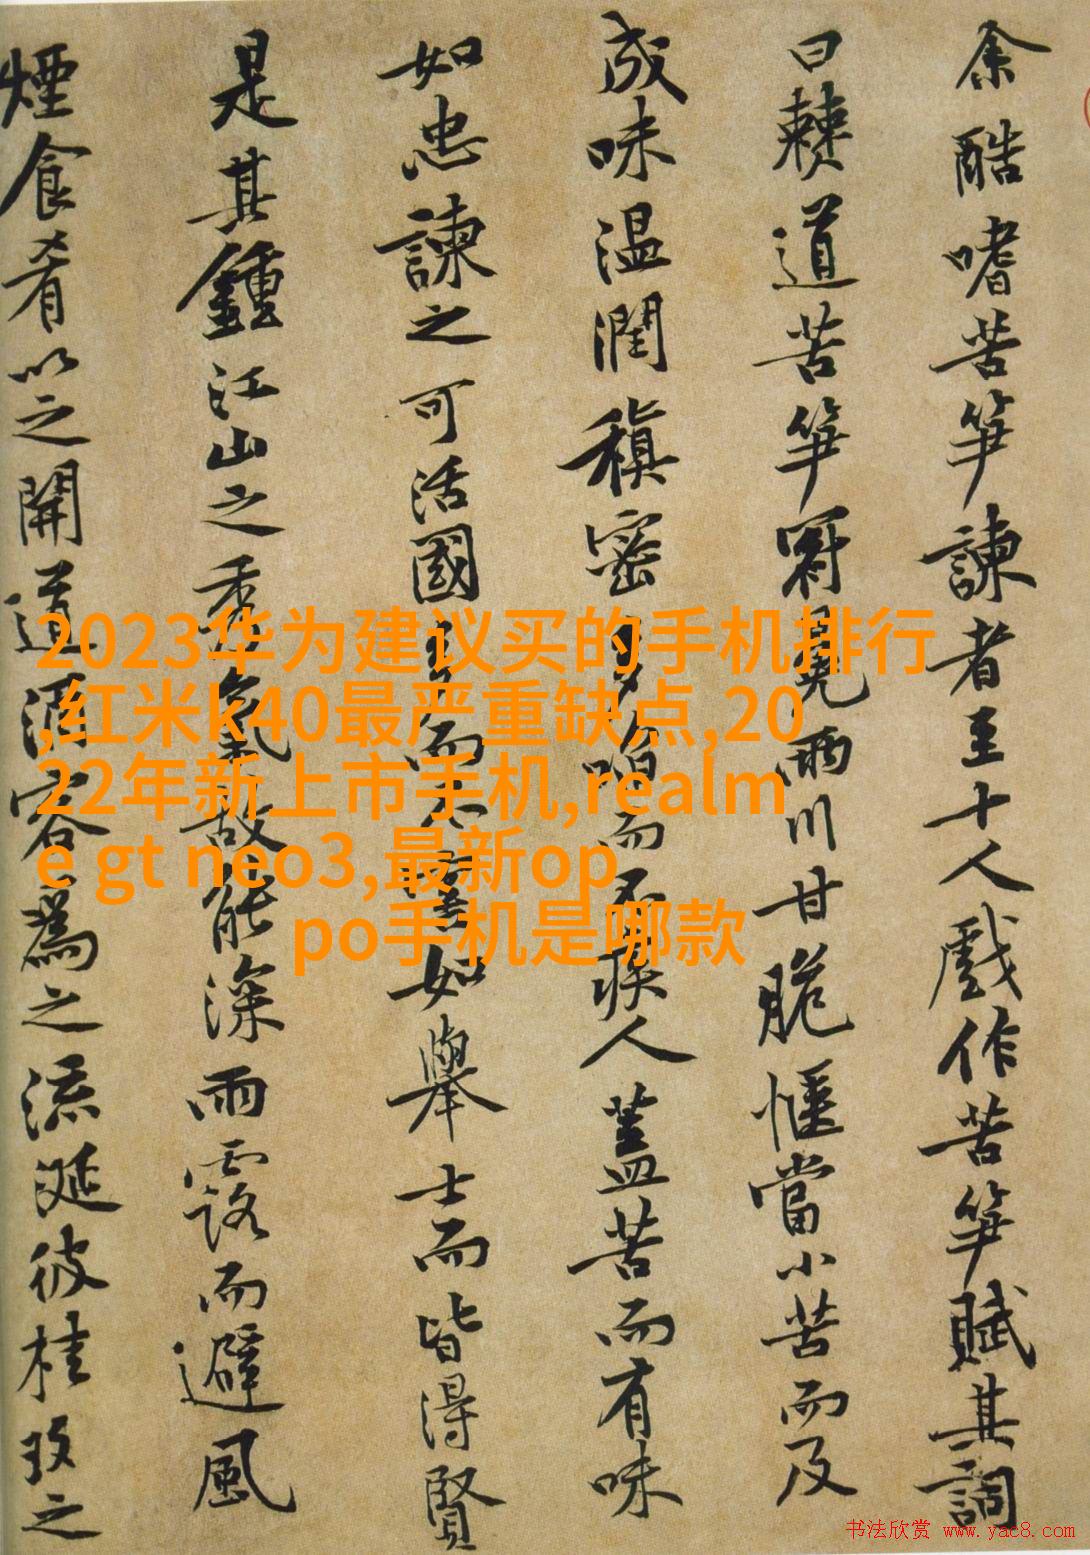 余酷嗜苦笋諫者至十人戲作苦笋賦其詞
曰僰道苦笋冠冕兩川甘脆愜當小苦而反
成味温潤稹密多啗而不疾人蓋苦而有味
如忠諫之可活國多而不害如舉士而皆得賢
是其鍾江山之秀氣故能深雨露而避風
煙食肴以之開道酒客為之流涎彼桂玫之
2023华为建议买的手机排行
,红米k40最严重缺点,20
22年新上市手机,realm
e gt neo3,最新op
po手机是哪款
书法欣赏 www.yac8.com